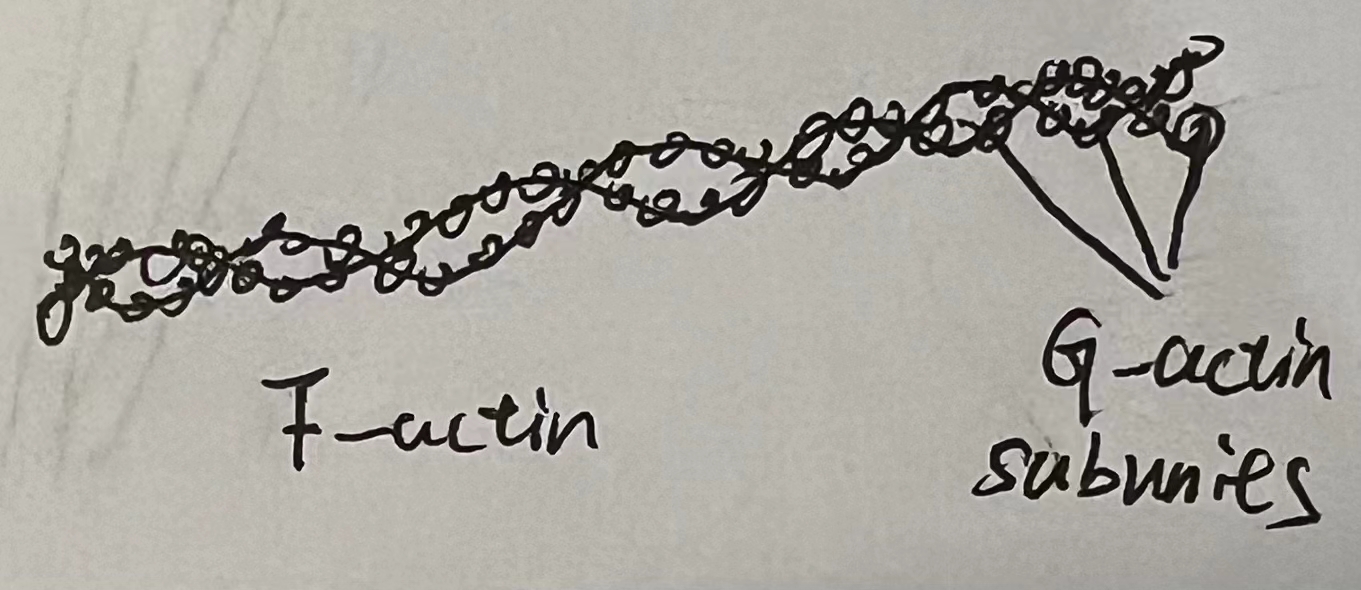 F-actin
G-actin
subunies